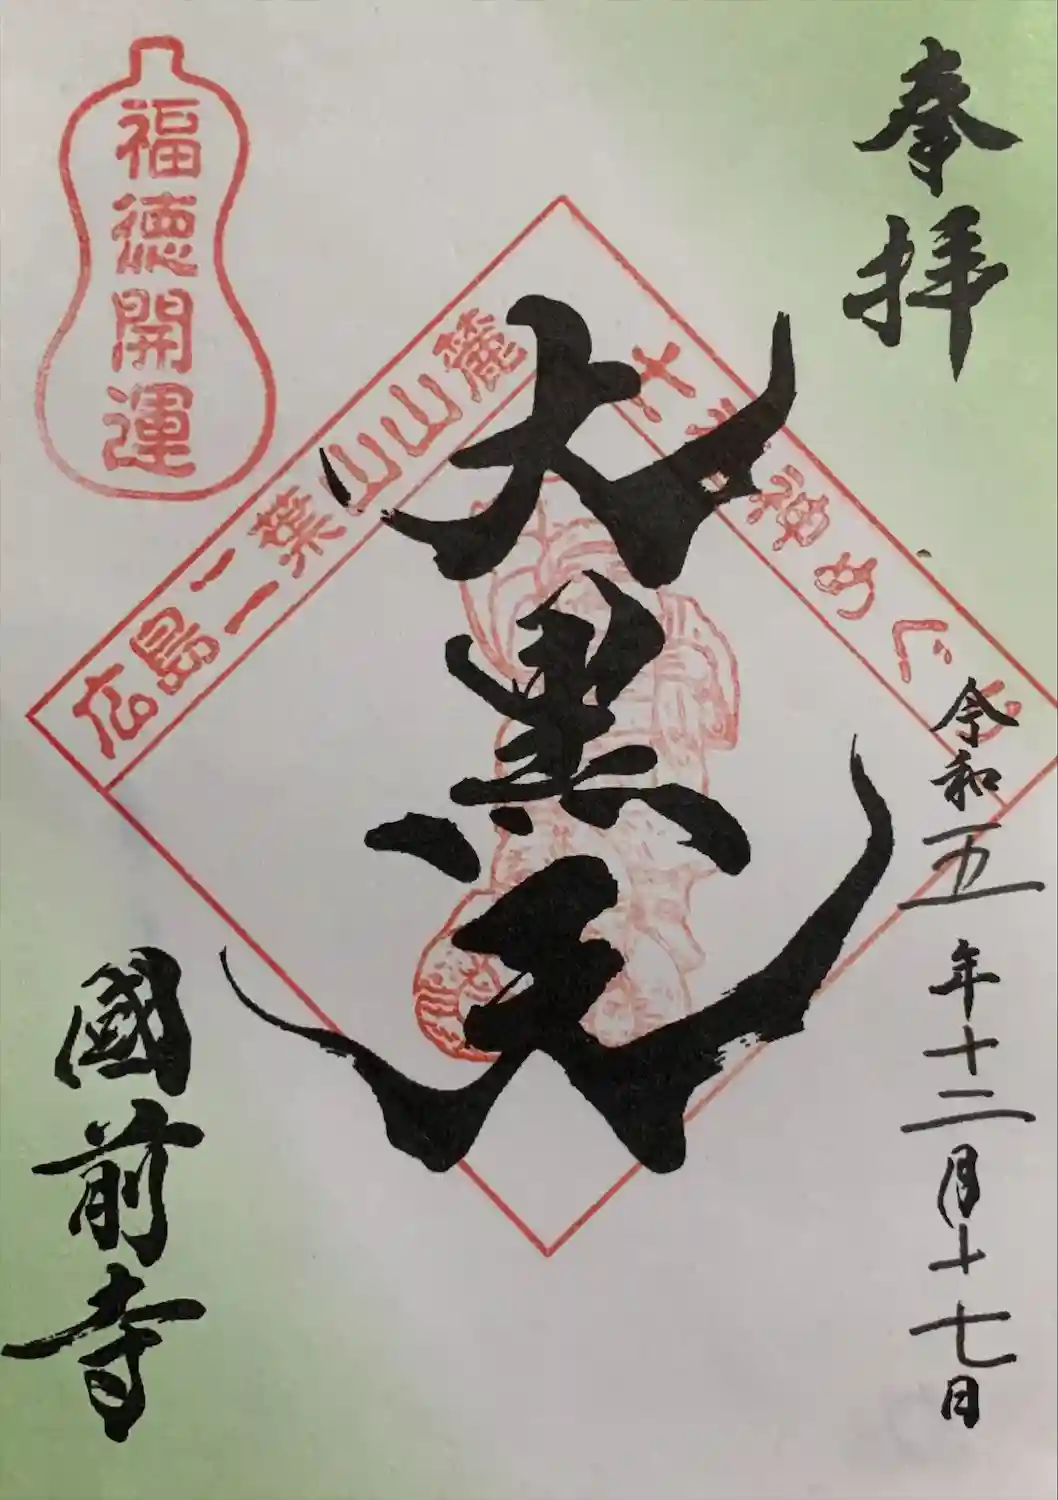 奉拝
令和五年十二月十七日
大黒天
七福神めぐり
広島二葉山山麓
福徳開運
國前寺